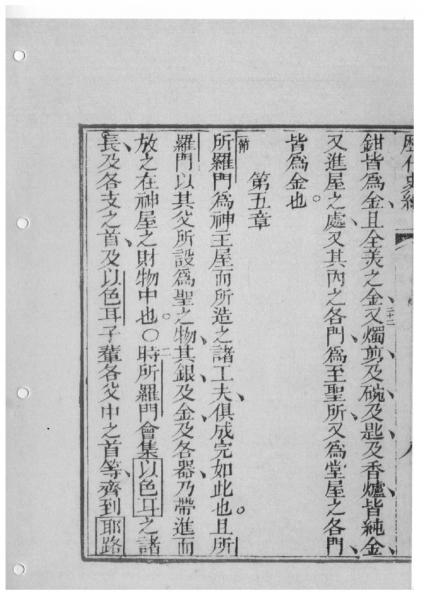 歷代史紀
鉗皆為金且全美之金又燭剪及碗及匙及香爐皆純金
二十二
又進屋之處又其內之各門為至聖所又為堂屋之各門
皆為金也
第五章
一節
所羅門為神主屋而所造之諸工夫俱成完如此也且所
羅門以其父所設為聖之物其銀及金及各器乃帶進而
放之在神屋之財物中也〇時所羅門會集以色耳之諸
二
長及各支之首及以色耳子輩各父中之首等齊到耶路